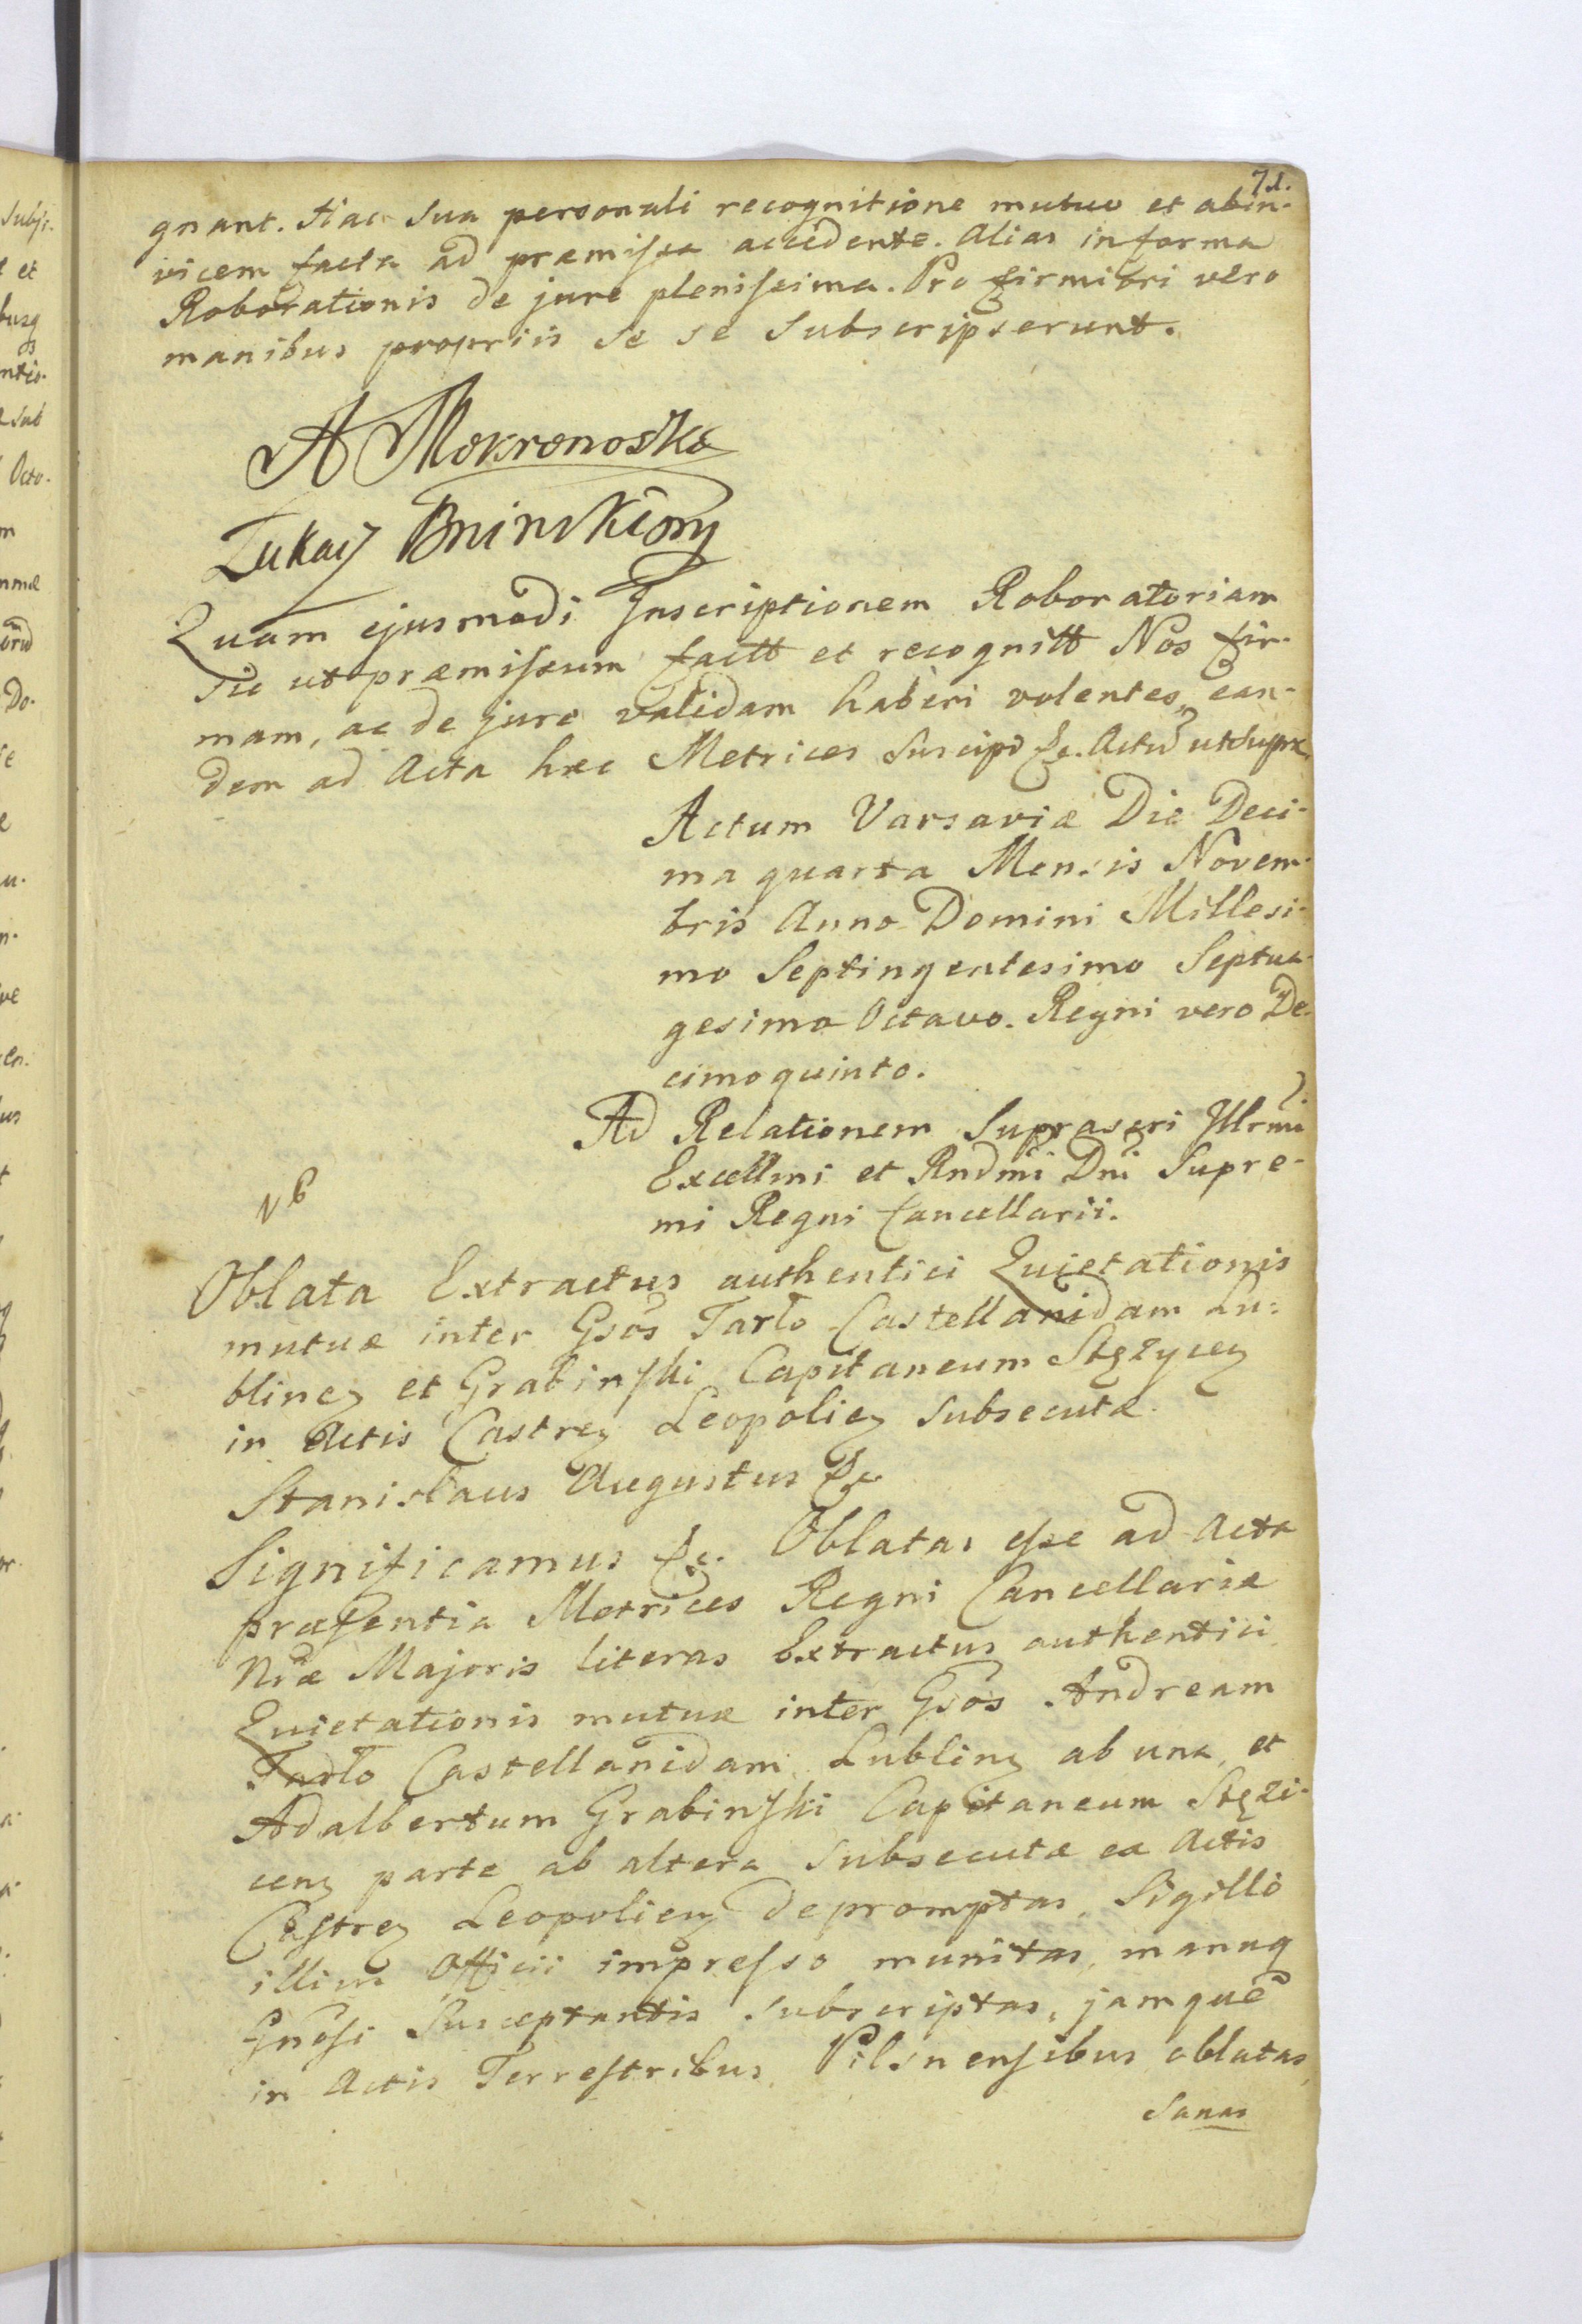 71.
gnant. Hac sua personali recognitione mutuo et abin-
vicem facta ad præmissa accedente. Alias in forma
Roborationis de jure plenissima. Pro firmitri vero
manibus propriis se se subscripserunt.
A Mokronoska
Łukasz Bninski mp
Quam ejusmodi Inscriptionem Roboratoriam
sic ut præmissum factt et recognitt Nos fir-
mam, ac de jure validam haberi volentes, ean-
dem ad Acta hæc Metrices suscipi &c. Actu ut supra
Actum Varsaviæ Die Deci-
ma quarta Mensis Novem-
bris Anno Domini Millesi-
mo Septingentesimo Septua-
gesimo Octavo. Regni vero De-
cimo quinto.
Ad Relationem supraseri Illrmi
Excellmi et Rndmi Dni Supre-
mi Regni Cancellarii.
Nb
Oblata Extractus authentici Quietationis
mutuæ inter Gsos Tarło Castellanidam Lu-
blineȝ et Grabinski Capitaneum Stężyceȝ
in Actis Castreȝ Leopolieȝ subsecutæ.
Stanislaus Augustus &c.
Significamus &c. Oblatas esse ad Acta
præsentia Metrices Regni Cancellariæ
Nræ Majoris literas Extractus authentici
Quietationis mutuæ inter Gsos Andream
Tarło Castellanidam Lublinȝ ab una, et
Adalbertum Grabinski Capitaneum Stęzi-
cenȝ parte ab altera subsecutæ ex Actis
Castreȝ Leopolienȝ depromptas, Sigillo
illius Officii impresso munitas, manuq
Gnosi Susceptantis subscriptas, jamque
in Actis Terrestribus Pilsnensibus oblatas,
sanas